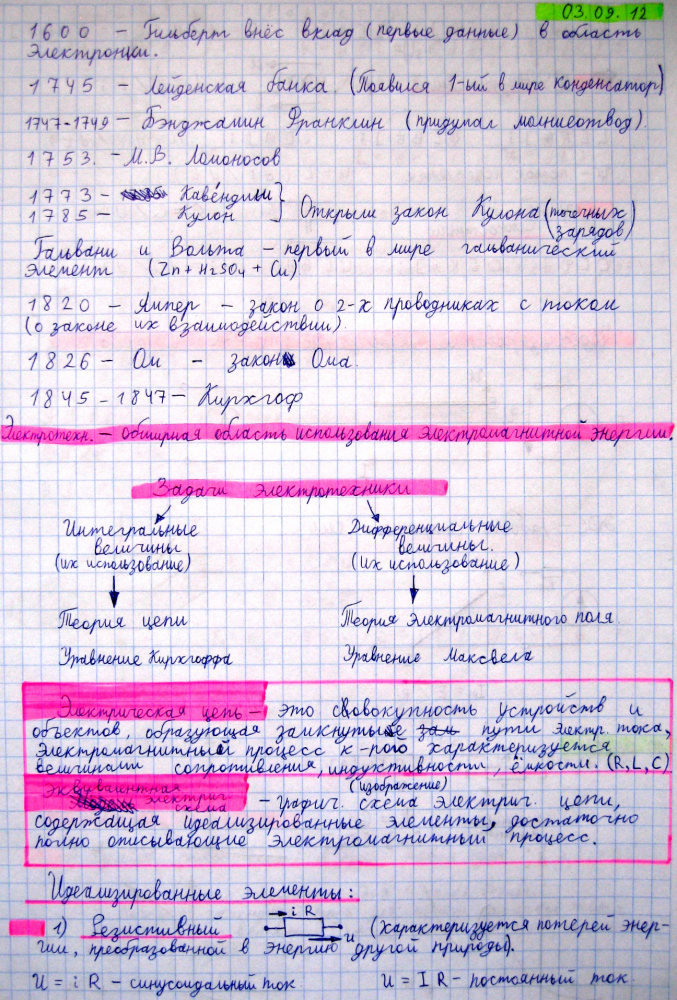 03.09.12
1600 – Гильберт внёс вклад (первые данные) в область
Электроники.
1745 – Лейденская банка. (Появился 1-ый в мире конденсатор)
1747-1749 – Бэнджамин Франклин (придумал молниеотвод).
1753. – М.В. Ломоносов
1773 – Кавендиш
1785 – Кулон } Открыли закон Кулона (точечных зарядов)
Гальвани и Вольта – первый в мире гальванический
элемент (Zn + H₂SO₄ + Cu)
1820 – Ампер – закон о 2-х проводниках с током
(о законе их взаимодействии).
1826 – Ом – закон Ома.
1845 - 1847 – Кирхгоф
Электротехн. – обширная область использования электромагнитной энергии.
Задачи электротехники
Интегральные величины (их использование)
Дифференциальные величины. (их использование)
Теория цепи
Теория Электромагнитного поля
Уравнение Кирхгоффа
Уравнение Максвела
Электрическая цепь – это совокупность устройств и
объектов, образующая замкнутые пути электр. тока,
электромагнитный процесс к-рого характеризуется
величинами сопротивления, индуктивности, ёмкости. (R, L, C)
Эквивалентная электрич. схема – графич. (изображение) схема электрич цепи,
содержащая идеализированные элементы, достаточно
полно описывающие электромагнитный процесс.
Идеализированные элементы:
i R
1) Резистивный u (характеризуется потерей энер-
гии, преобразованной в энергию другой природы).
u = i R – синусоидальный ток
U = I R – постоянный ток.